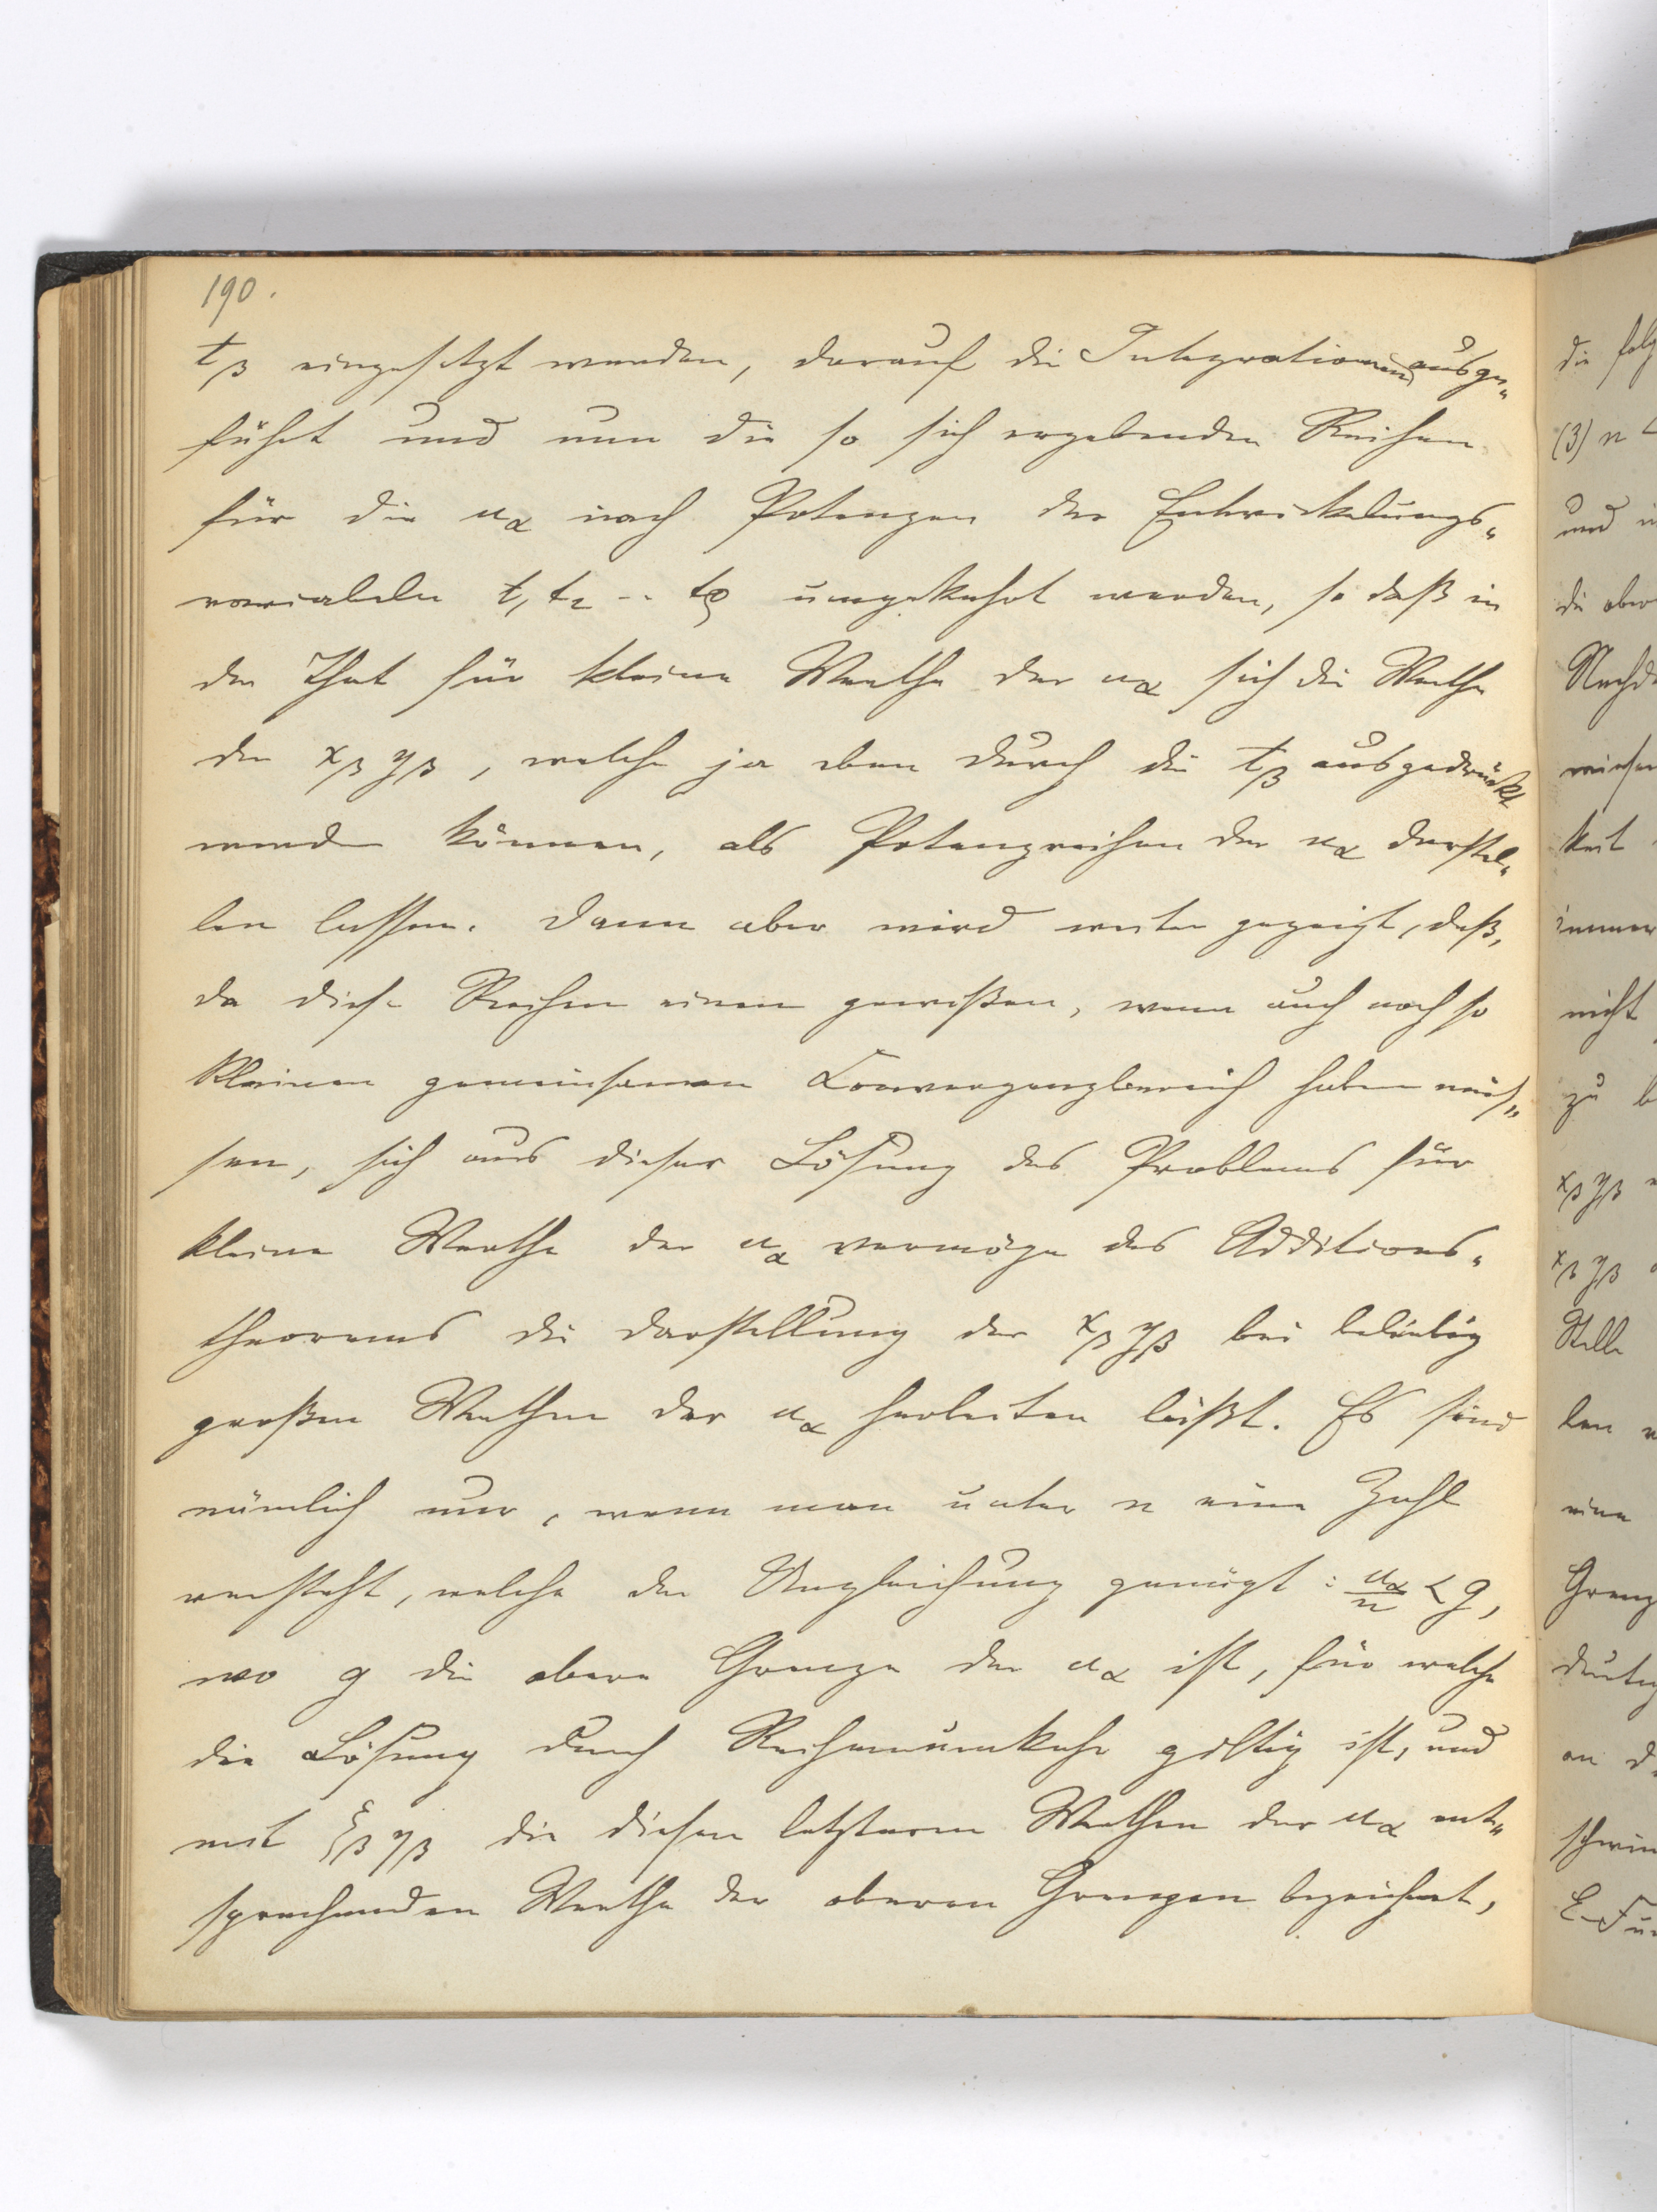 190.
t_β eingesetzt werden, darauf die Integrationen ausge-
führt und nun die so sich ergebenden Reihen
für die u_α nach Potenzen der Entwickelungs-
variabeln t_1 t_2 .. t_ϱ umgekehrt werden, so daß in
der That für kleine Werthe der u_α sich die Werthe
der x_β y_β, welche ja eben durch die t_β ausgedrückt
werden können, als Potenzreihen der u_α darstel-
len lassen. Dann aber wird weiter gezeigt, daß,
da diese Reihen einen gewißen, wenn auch noch so
kleinen gemeinsamen Convergenzbereich haben müs-
sen, sich aus dieser Lösung des Problems für
kleine Werthe der u_α vermöge des Additions-
theorems die Darstellung der x_β y_β bei beliebig
großen Werthen der u_α herleiten läßt. Es sind
nämlich nur, wenn man unter n eine Zahl
versteht, welche der Ungleichung genügt: u_α/n < g,
wo g die obere Grenze der u_α ist, für welche
die Lösung durch Reihenumkehr giltig ist, und
mit ξ_β η_β die diesen letzteren Werthen der u_α ent-
sprechenden Werthe der oberen Grenzen bezeichnet,
die folg
(3) n
und
die ober
Nachde
keit
immer
nicht
zu b
x_β y_β
x_β y_β
Stelle
len
eine
Grenz
deutig
an d
schwin
E-Fun